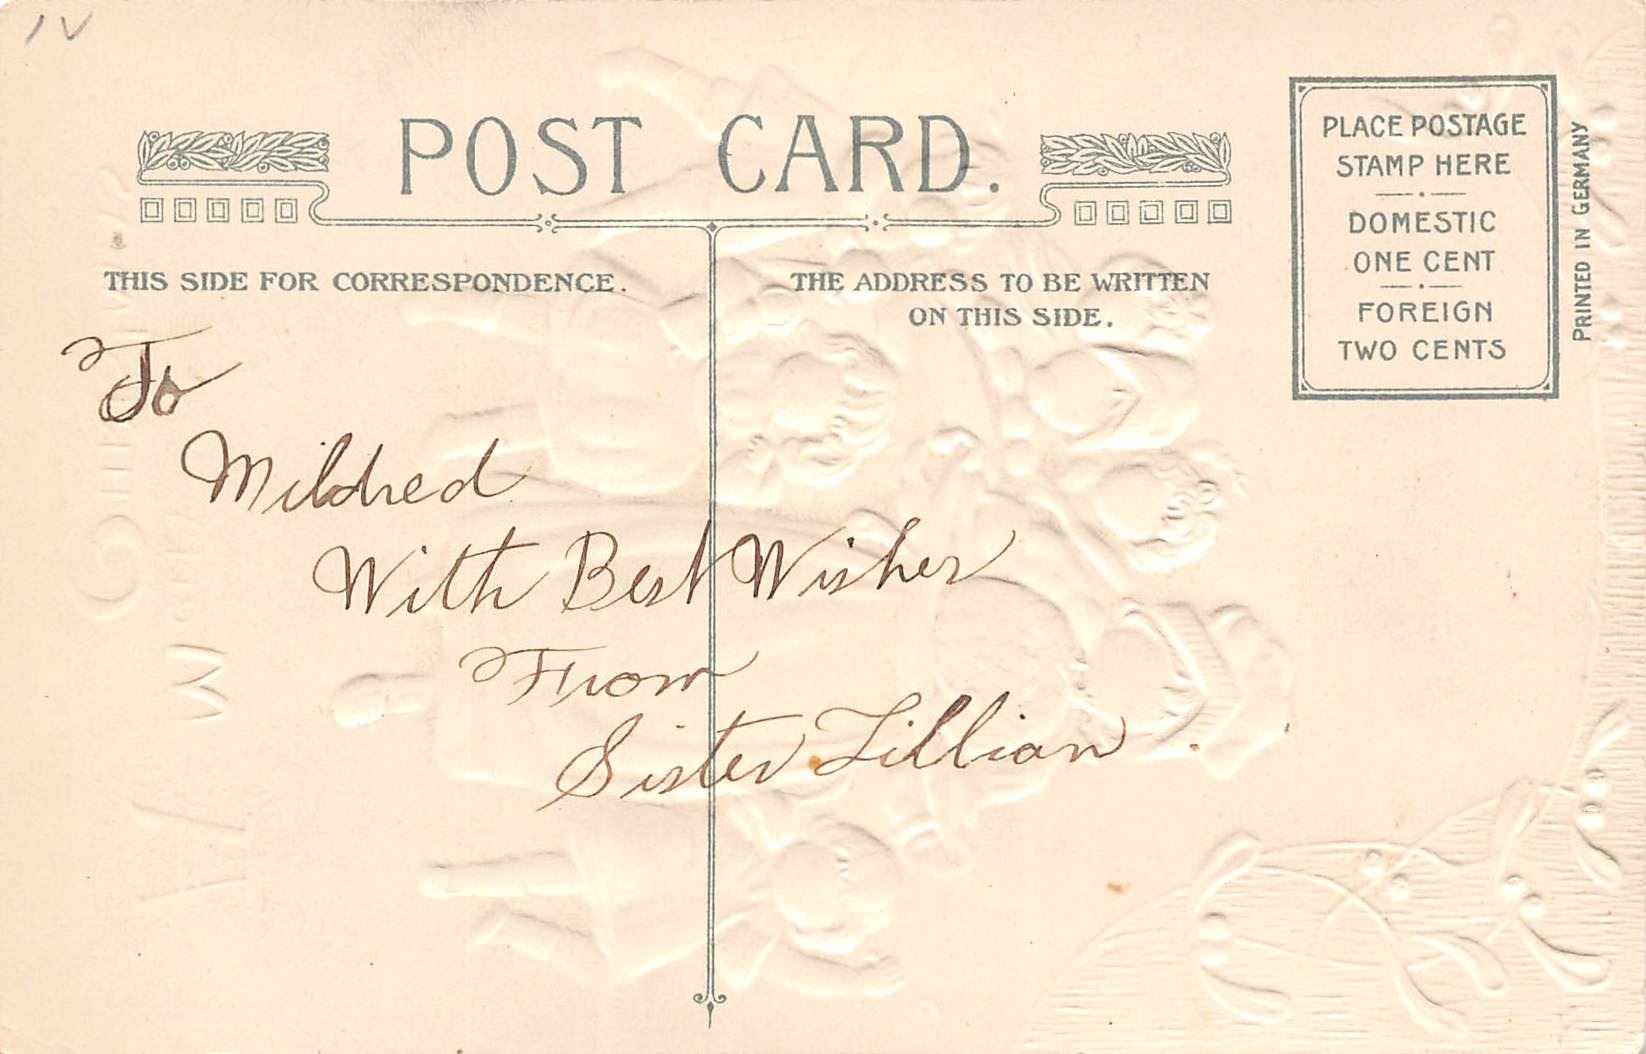 IV
POST CARD.
THIS SIDE FOR CORRESPONDENCE.
THE ADDRESS TO BE WRITTEN
ON THIS SIDE.
PLACE POSTAGE
STAMP HERE
DOMESTIC
ONE CENT
FOREIGN
TWO CENTS
PRINTED IN GERMANY
To
Mildred
With Best Wishes
From
Sister Lillian